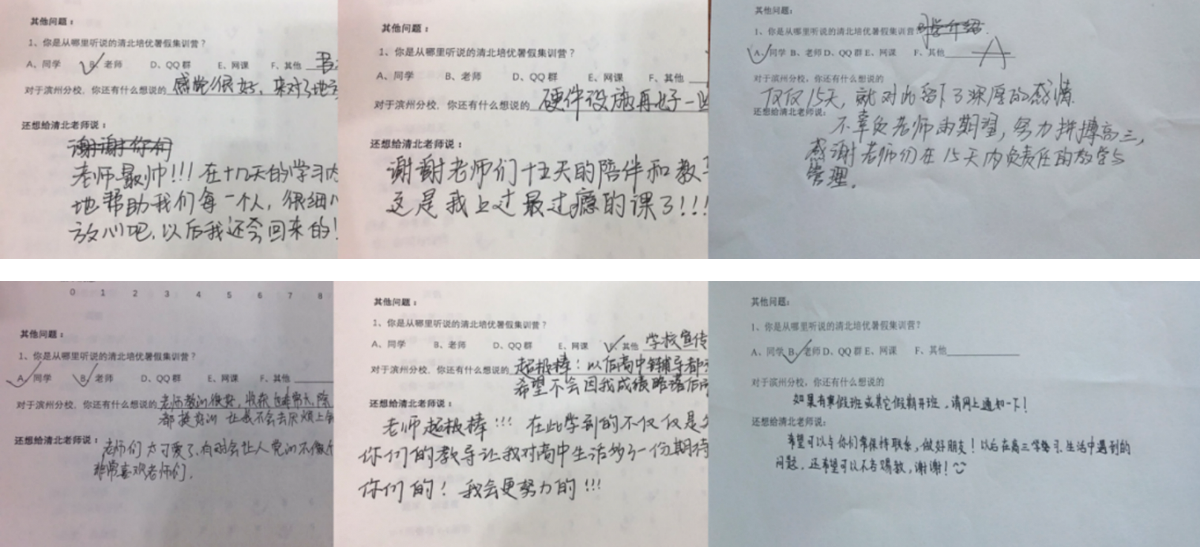 其他问题：
1、你是从哪里听说的清北培优暑假集训营？
A、同学 B、老师 D、QQ群 E、网课 F、其他
对于滨州分校，你还有什么想说的 感觉很好，来对了地方
还想给清北老师说：
谢谢你们
老师最帅！！！在十几天的学习内
地帮助我们每一个人，很细心
放心吧，以后我还会回来的！
其他问题：
1、你是从哪里听说的清北培优暑假集训营？
A、同学 B、老师 D、QQ群 E、网课 F、其他
对于滨州分校，你还有什么想说的 硬件设施再好一些
还想给清北老师说：
谢谢老师们十五天的陪伴和教导
这是我上过最过瘾的课了！！！
其他问题：
1、你是从哪里听说的清北培优暑假集训营？ 同学介绍
A、同学 B、老师 D、QQ群 E、网课 F、其他 A
对于滨州分校，你还有什么想说的
仅仅15天，就对此留下了深厚的感情
还想给清北老师说：
不辜负老师的期望，努力拼搏高三，
感谢老师们在15天内负责任的教学与
管理。
0 1 2 3 4 5 6 7 8
其他问题：
1、你是从哪里听说的清北培优暑假集训营？
A、同学 B、老师 D、QQ群 E、网课 F、其他
对于滨州分校，你还有什么想说的 老师教的很好，收获
都挺好的
还想给清北老师说：
老师们太可爱了，有时会让人觉的不像
非常喜欢老师们。
其他问题：
1、你是从哪里听说的清北培优暑假集训营？
A、同学 B、老师 D、QQ群 E、网课 F、其他 学校宣传
对于滨州分校，你还有什么想说的 超极棒！以后高中辅导都
希望不会因我成绩略落后
还想给清北老师说：
老师超极棒！！！在此学到的不仅仅是
你们的教导让我对高中生活多了一份期待
你们的！我会更努力的！！！
其他问题：
1、你是从哪里听说的清北培优暑假集训营？
A、同学 B、老师 D、QQ群 E、网课 F、其他
对于滨州分校，你还有什么想说的
如果有寒假班或其它假期开班，请网上通知一下！
还想给清北老师说：
希望可以与你们常保持联系，做好朋友！以后在高三学习、生活中遇到的
问题，还希望可以不吝赐教，谢谢！